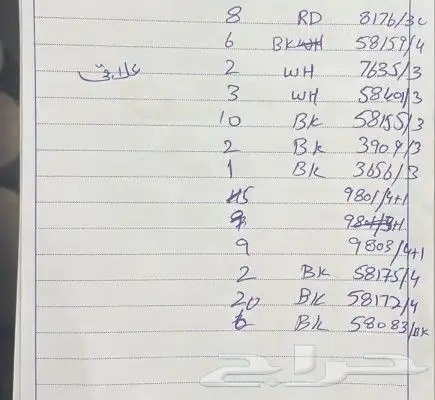 8 RD 8176/3c
6 BK 58159/4
علاق 2 WH 7635/3
3 WH 58601/3
10 BK 58155/3
2 BK 3909/3
1 BK 3656/3
15 9801/4+1
9 9803/4+1
2 BK 58175/4
20 BK 58172/4
6 BK 58083/BK
حراج